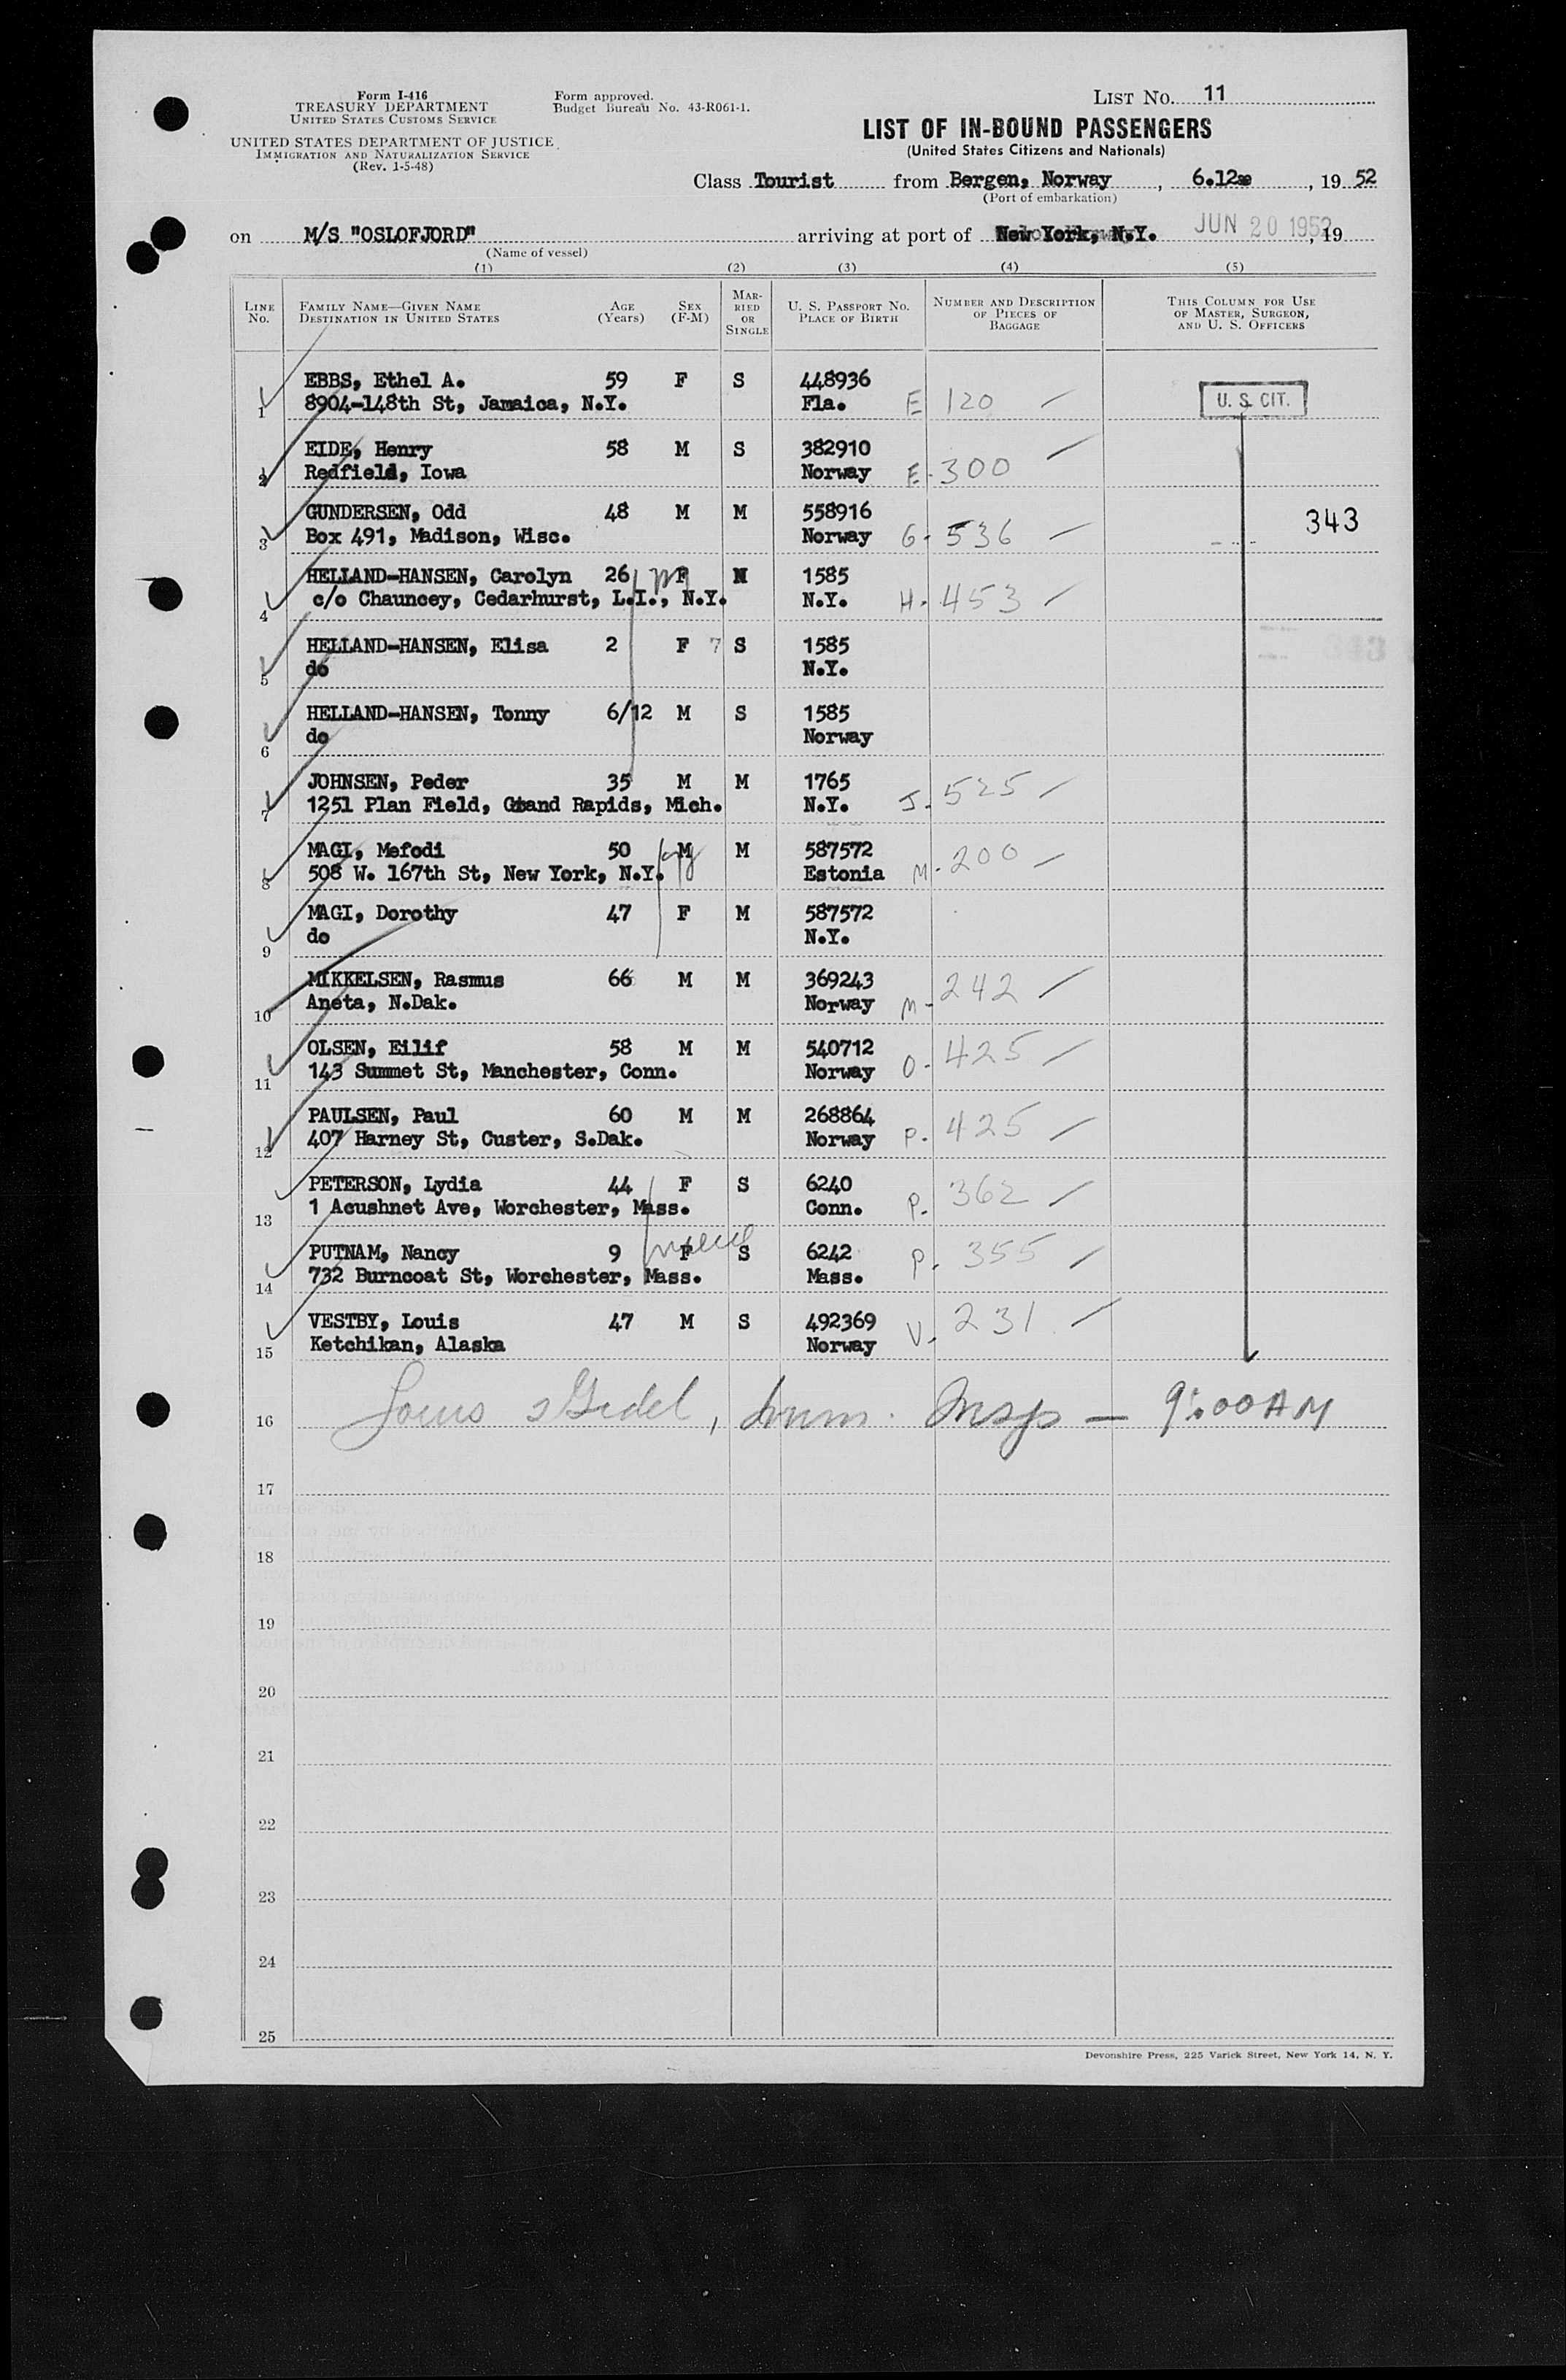 Form I-416
TREASURY DEPARTMENT
UNITED STATES CUSTOMS SERVICE
UNITED STATES DEPARTMENT OF JUSTICE
IMMIGRATION AND NATURALIZATION SERVICE
(Rev. 1-5-48)
Form approved.
Budget Bureau No. 43-R061-1.
LIST NO. 11
LIST OF IN-BOUND PASSENGERS
(United States Citizens and Nationals)
Class Tourist from Bergen, Norway, 6.12, 19 52
(Port of embarkation)
on M/S "OSLOFJORD" arriving at port of New York, N.Y. JUN 20 1952, 19
(Name of vessel)
(1) (2) (3) (4) (5)
LINE NO. FAMILY NAME—GIVEN NAME DESTINATION IN UNITED STATES AGE (Years) SEX (F-M) MARRIED OR SINGLE U. S. PASSPORT NO. PLACE OF BIRTH NUMBER AND DESCRIPTION OF PIECES OF BAGGAGE THIS COLUMN FOR USE OF MASTER, SURGEON, AND U. S. OFFICERS
EBBS, Ethel A. 59 F S 448936
1 8904-148th St, Jamaica, N.Y. Fla. E 120 U. S. CIT.
EIDE, Henry 58 M S 382910
2 Redfield, Iowa Norway E-300
GUNDERSEN, Odd 48 M M 558916 343
3 Box 491, Madison, Wisc. Norway G-536
HELLAND-HANSEN, Carolyn 26 F M 1585
4 c/o Chauncey, Cedarhurst, L.I., N.Y. N.Y. H-453
HELLAND-HANSEN, Elisa 2 F 7 S 1585
5 do N.Y.
HELLAND-HANSEN, Tonny 6/12 M S 1585
6 do Norway
JOHNSEN, Peder 35 M M 1765
7 1251 Plan Field, Grand Rapids, Mich. N.Y. J-525
MAGI, Mefodi 50 M M 587572
8 508 W. 167th St, New York, N.Y. Estonia M-200
MAGI, Dorothy 47 F M 587572
9 do N.Y.
MIKKELSEN, Rasmus 66 M M 369243
10 Aneta, N.Dak. Norway M-242
OLSEN, Eilif 58 M M 540712
11 143 Summet St, Manchester, Conn. Norway O-425
PAULSEN, Paul 60 M M 268864
12 407 Harney St, Custer, S.Dak. Norway P-425
PETERSON, Lydia 44 F S 6240
13 1 Acushnet Ave, Worchester, Mass. Conn. P. 362
PUTNAM, Nancy 9 F S 6242
14 732 Burncoat St, Worchester, Mass. Mass. P. 355
VESTBY, Louis 47 M S 492369
15 Ketchikan, Alaska Norway V. 231
16 Imm. Insp — 9:00 AM
17
18
19
20
21
22
23
24
25
Devonshire Press, 225 Varick Street, New York 14, N. Y.